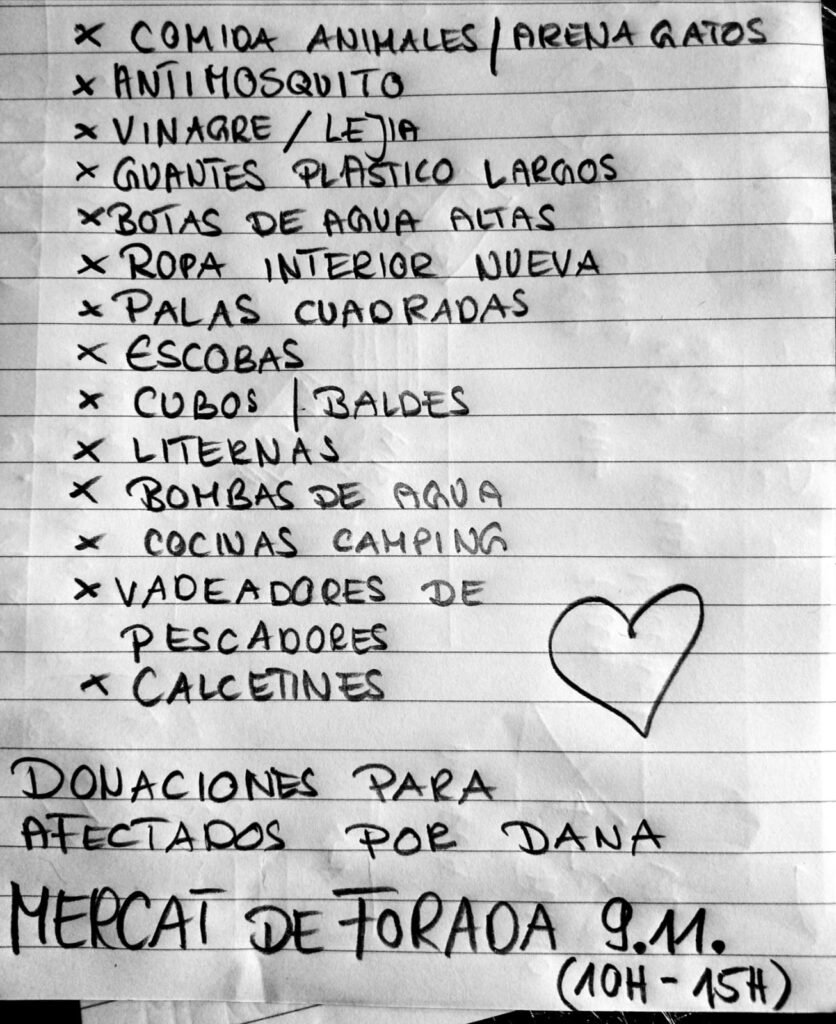 × COMIDA ANIMALES / ARENA GATOS
× ANTIMOSQUITO
× VINAGRE / LEJIA
× GUANTES PLASTICO LARGOS
× BOTAS DE AGUA ALTAS
× ROPA INTERIOR NUEVA
× PALAS CUADRADAS
× ESCOBAS
× CUBOS / BALDES
× LITERNAS
× BOMBAS DE AGUA
× COCINAS CAMPING
× VADEADORES DE
PESCADORES
× CALCETINES
DONACIONES PARA
AFECTADOS POR DANA
MERCAT DE FORADA 9.11.
(10H - 15H)